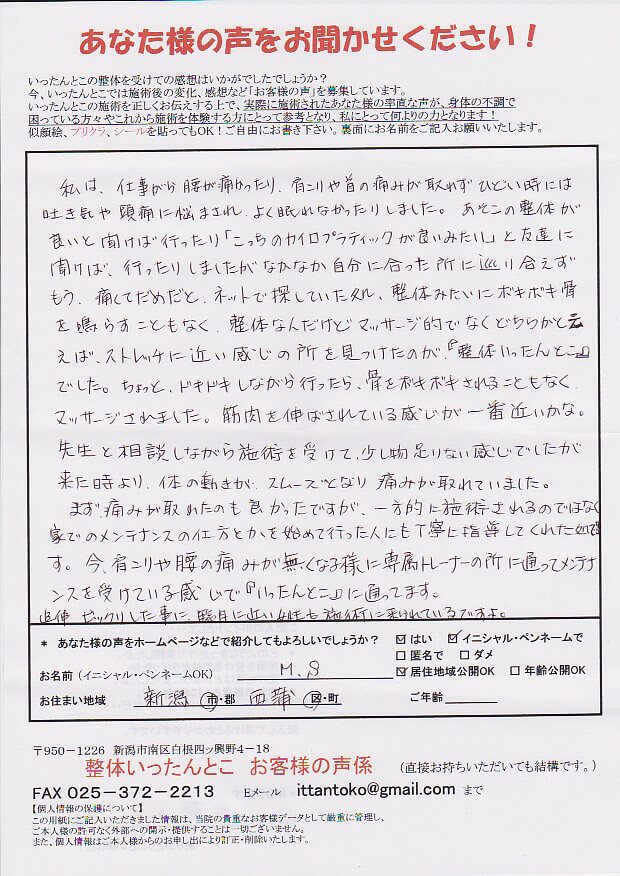 あなた様の声をお聞かせください！
いったんとこの整体を受けての感想はいかがでしたでしょうか？
今、いったんとこでは施術後の変化、感想など「お客様の声」を募集しています。
いったんとこの施術を正しくお伝えする上で、実際に施術されたあなた様の率直な声が、身体の不調で
困っている方々やこれから施術を体験する方にとって参考となり、私にとって何よりの力となります！
似顔絵、プリクラ、シールを貼ってもOK！ご自由にお書き下さい。裏面にお名前をご記入お願いいたします。
私は、仕事がら腰が痛かったり、肩こりや首の痛みが取れずひどい時には
吐き気や頭痛に悩まされ、よく眠れなかったりしました。あそこの整体が
良いと聞けば行ったり「こっちのカイロプラティックが良いみたい」と友達に
聞けば、行ったりしましたがなかなか自分に合った所に巡り合えず
もう、痛くてだめだと、ネットで探していた処、整体みたいにボキボキ骨
を鳴らすこともなく、整体なんだけどマッサージ的でなくどちらかと云
えば、ストレッチに近い感じの所を見つけたのが、『整体いったんとこ』
でした。ちょっと、ドキドキしながら行ったら、骨をボキボキされることもなく、
マッサージされました。筋肉を伸ばされている感じが一番近いかな。
先生と相談しながら施術を受けて、少し物足りない感じでしたが
来た時より、体の動きが、スムーズとなり 痛みが取れていました。
まず、痛みが取れたのも良かったですが、一方的に施術されるのではなく
家でのメンテナンスの仕方とかを始めて行った人にも丁寧に指導してくれた処です
す。今、肩こりや腰の痛みが無くなる様に専属トレーナーの所に通ってメンテナ
ンスを受けている感じで『いったんとこ』に通ってます。
追伸 ビックリした事に、臨月に近い女性も施術に来れているですよ。
* あなた様の声をホームページなどで紹介してもよろしいでしょうか？ ☑ はい ☑ イニシャル・ペンネームで
□ 匿名で □ ダメ
お名前（イニシャル・ペンネームOK） M.S ☑ 居住地域公開OK □ 年齢公開OK
お住まい地域 新潟 市・郡 西蒲 区・町 ご年齢
〒950－1226 新潟市南区白根四ッ興野4－18
整体いったんとこ お客様の声係 （直接お持ちいただいても結構です。）
FAX 025－372－2213 Eメール ittantoko@gmail.com まで
【個人情報の保護について】
この用紙にご記入いただきました情報は、当院の貴重なお客様データとして厳重に管理し、
ご本人様の許可なく外部への開示・提供することは一切ございません。
また、個人情報はご本人様からのお申し出により訂正・削除いたします。